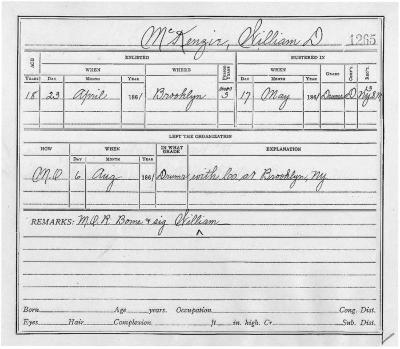 McKenzie, William D 1265
AGE ENLISTED MUSTERED IN
YEARS DAY MONTH WHEN 186 WHERE PERIOD YEARS DAY MONTH WHEN 186 GRADE CO'Y. REG'T.
18 23 April 1861 Brooklyn 3 17 May 1861 Drumr D 13 NY
LEFT THE ORGANIZATION
HOW WHEN IN WHAT GRADE EXPLANATION
DAY MONTH 186
M.O 6 Aug 1861 Drumr with Co. at Brooklyn, Ny
REMARKS: M.O.R. Borne & sig William
Born Age years. Occupation Cong. Dist.
Eyes Hair Complexion ft in. high. Cr Sub. Dist.